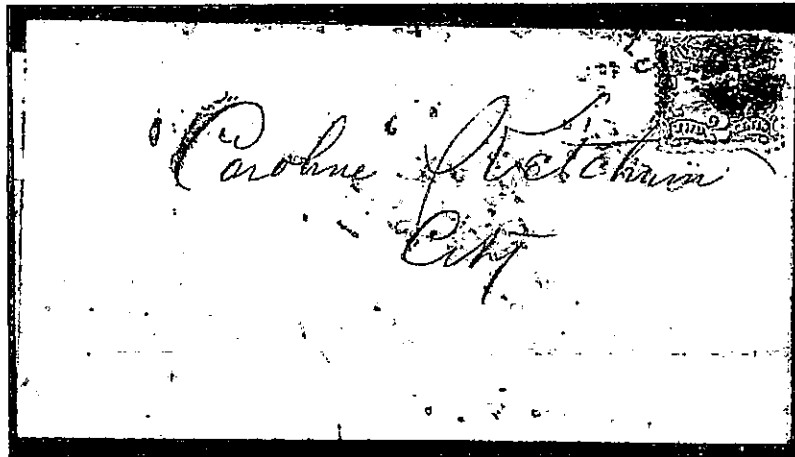 Caroline Ketchum
City